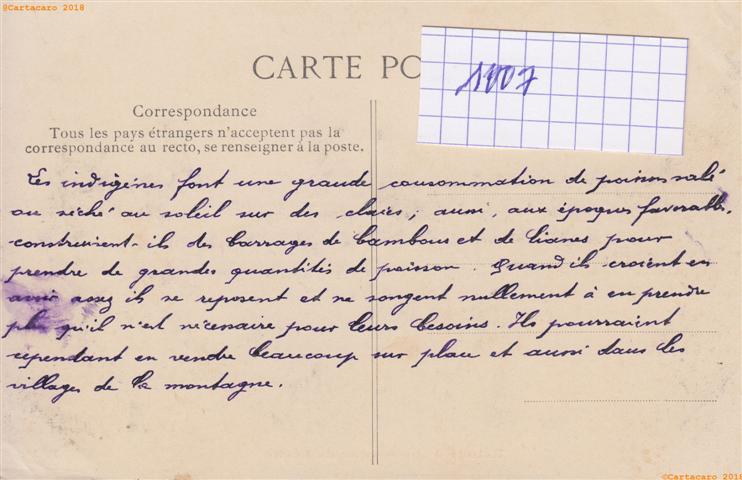 ©Cartacaro 2018
CARTE PO
1407
Correspondance
Tous les pays étrangers n'acceptent pas la
correspondance au recto, se renseigner à la poste.
Les indigènes font une grande consommation de poisson salé
ou séché au soleil sur des claies; aussi, aux époques favorables,
construisent-ils des barrages de bambous et de lianes pour
prendre de grandes quantités de poisson. Quand ils croient en
avoir assez ils se reposent et ne songent nullement à en prendre
plus qu'il n'est nécessaire pour leurs besoins. Ils pourraient
cependant en vendre beaucoup sur place et aussi dans les
villages de la montagne.
©Cartacaro 2018